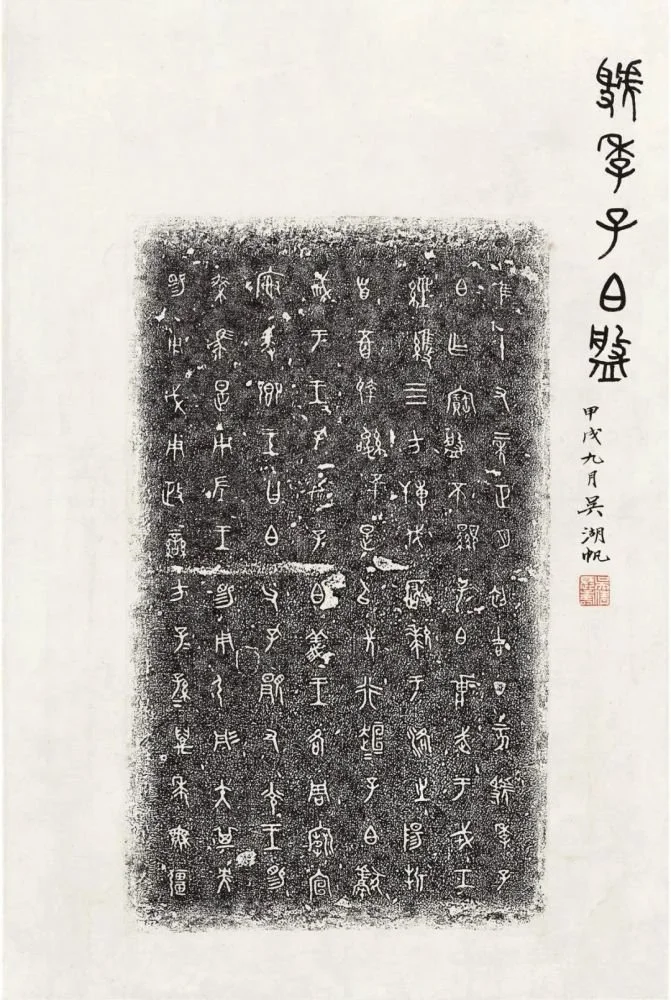 虢季子白盤
甲戌九月吳湖帆
隹十又二年正月初吉丁亥虢季子
白乍寶盤不顯子白壯武于戎工
經維四方搏伐玁狁于洛之陽折
首五百執訊五十是以先行趄=子白獻
馘于王=孔加子白義王各周廟宣
榭爰卿王曰白父孔顯又光王睗
乘馬是用左王睗用弓彤矢其央
睗用戉用政蠻方子=孫=萬年無疆